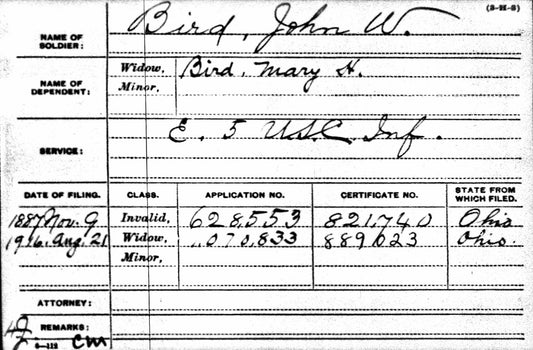 (3-H-8)
NAME OF SOLDIER: Bird, John W.
NAME OF DEPENDENT: Widow, Bird, Mary H.
Minor,
SERVICE: E. 5 U.S.C. Inf.
DATE OF FILING. CLASS. APPLICATION NO. CERTIFICATE NO. STATE FROM WHICH FILED.
1887 Nov. 9 Invalid, 628,553 821,740 Ohio
1916 Aug. 21 Widow, 1,070,833 889,023 Ohio.
Minor,
ATTORNEY:
REMARKS:
CM